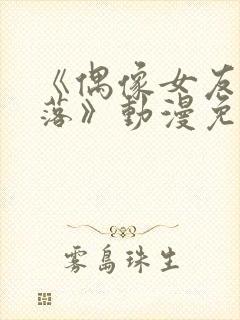 《偶像女友
落》動漫免
雾島珠生